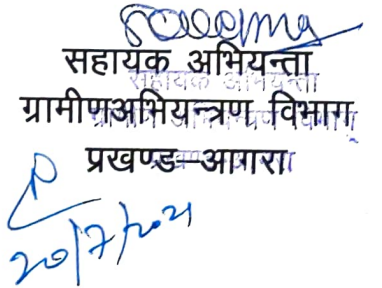 सहायक अभियन्ता
सहायक अभियन्ता
ग्रामीणअभियन्त्रण विभाग
प्रखण्ड–आगरा
20/7/2021